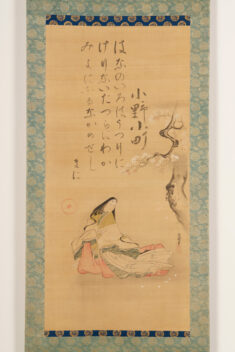 小野小町
はなのいろはうつりに
けりないたつらにわか
みよにふるなかめせし
まに